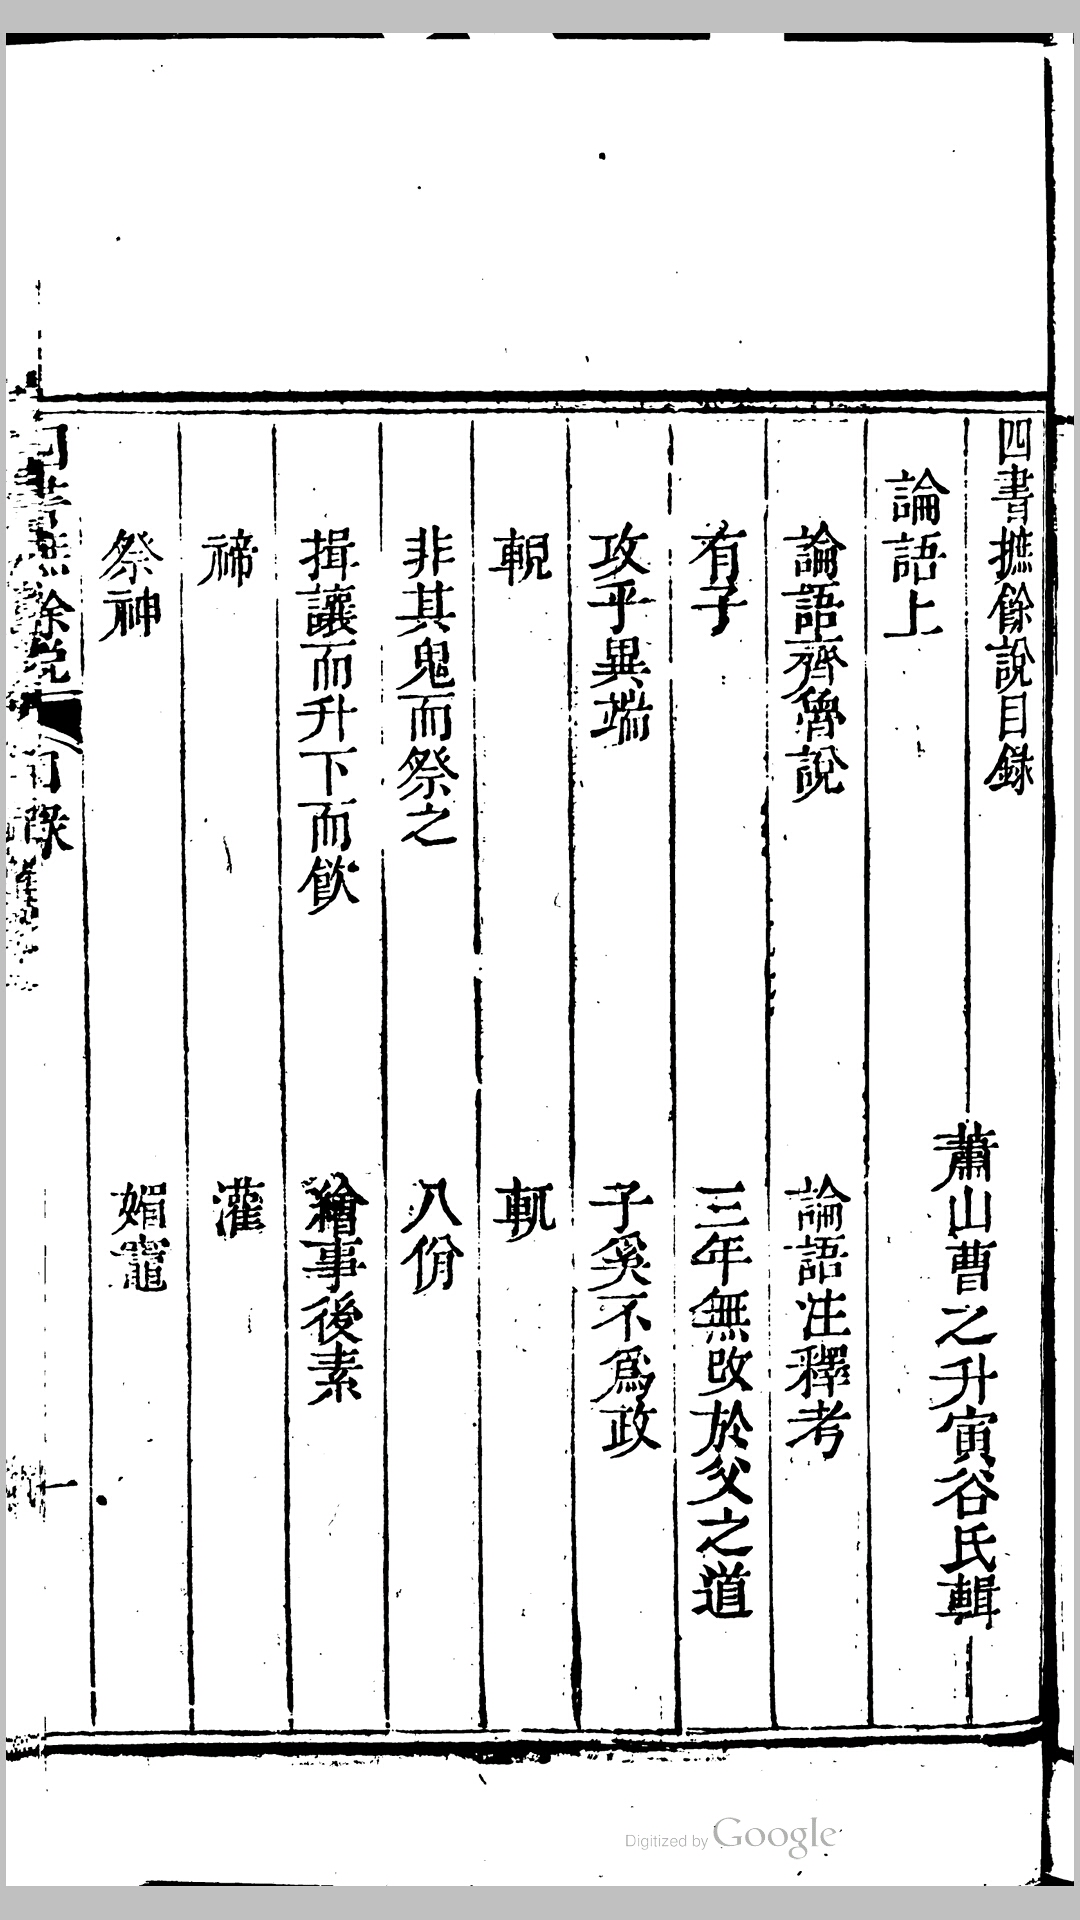 四書摭餘說目錄
蕭山曹之升寅谷氏輯
論語上
論語齊魯說
論語注釋考
有子
三年無改於父之道
攻乎異端
子奚不爲政
輗
軏
非其鬼而祭之
八佾
揖讓而升下而飮
繪事後素
禘
灌
祭神
媚竈
四書摭餘說
目錄
一
Digitized by Google